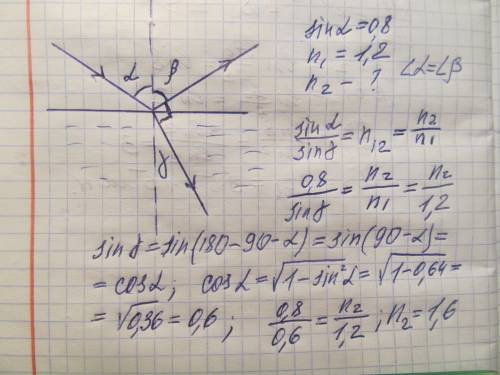 α β
γ
sinα=0,8
n₁=1,2
n₂ - ?
∠α=∠β
sinα/sinγ = n₁₂ = n₂/n₁
0,8/sinγ = n₂/n₁ = n₂/1,2
sinγ=sin(180-90-α)=sin(90-α)=
=cosα; cosα=√(1-sin²α)=√(1-0,64)=
=√0,36=0,6; 0,8/0,6 = n₂/1,2; n₂=1,6